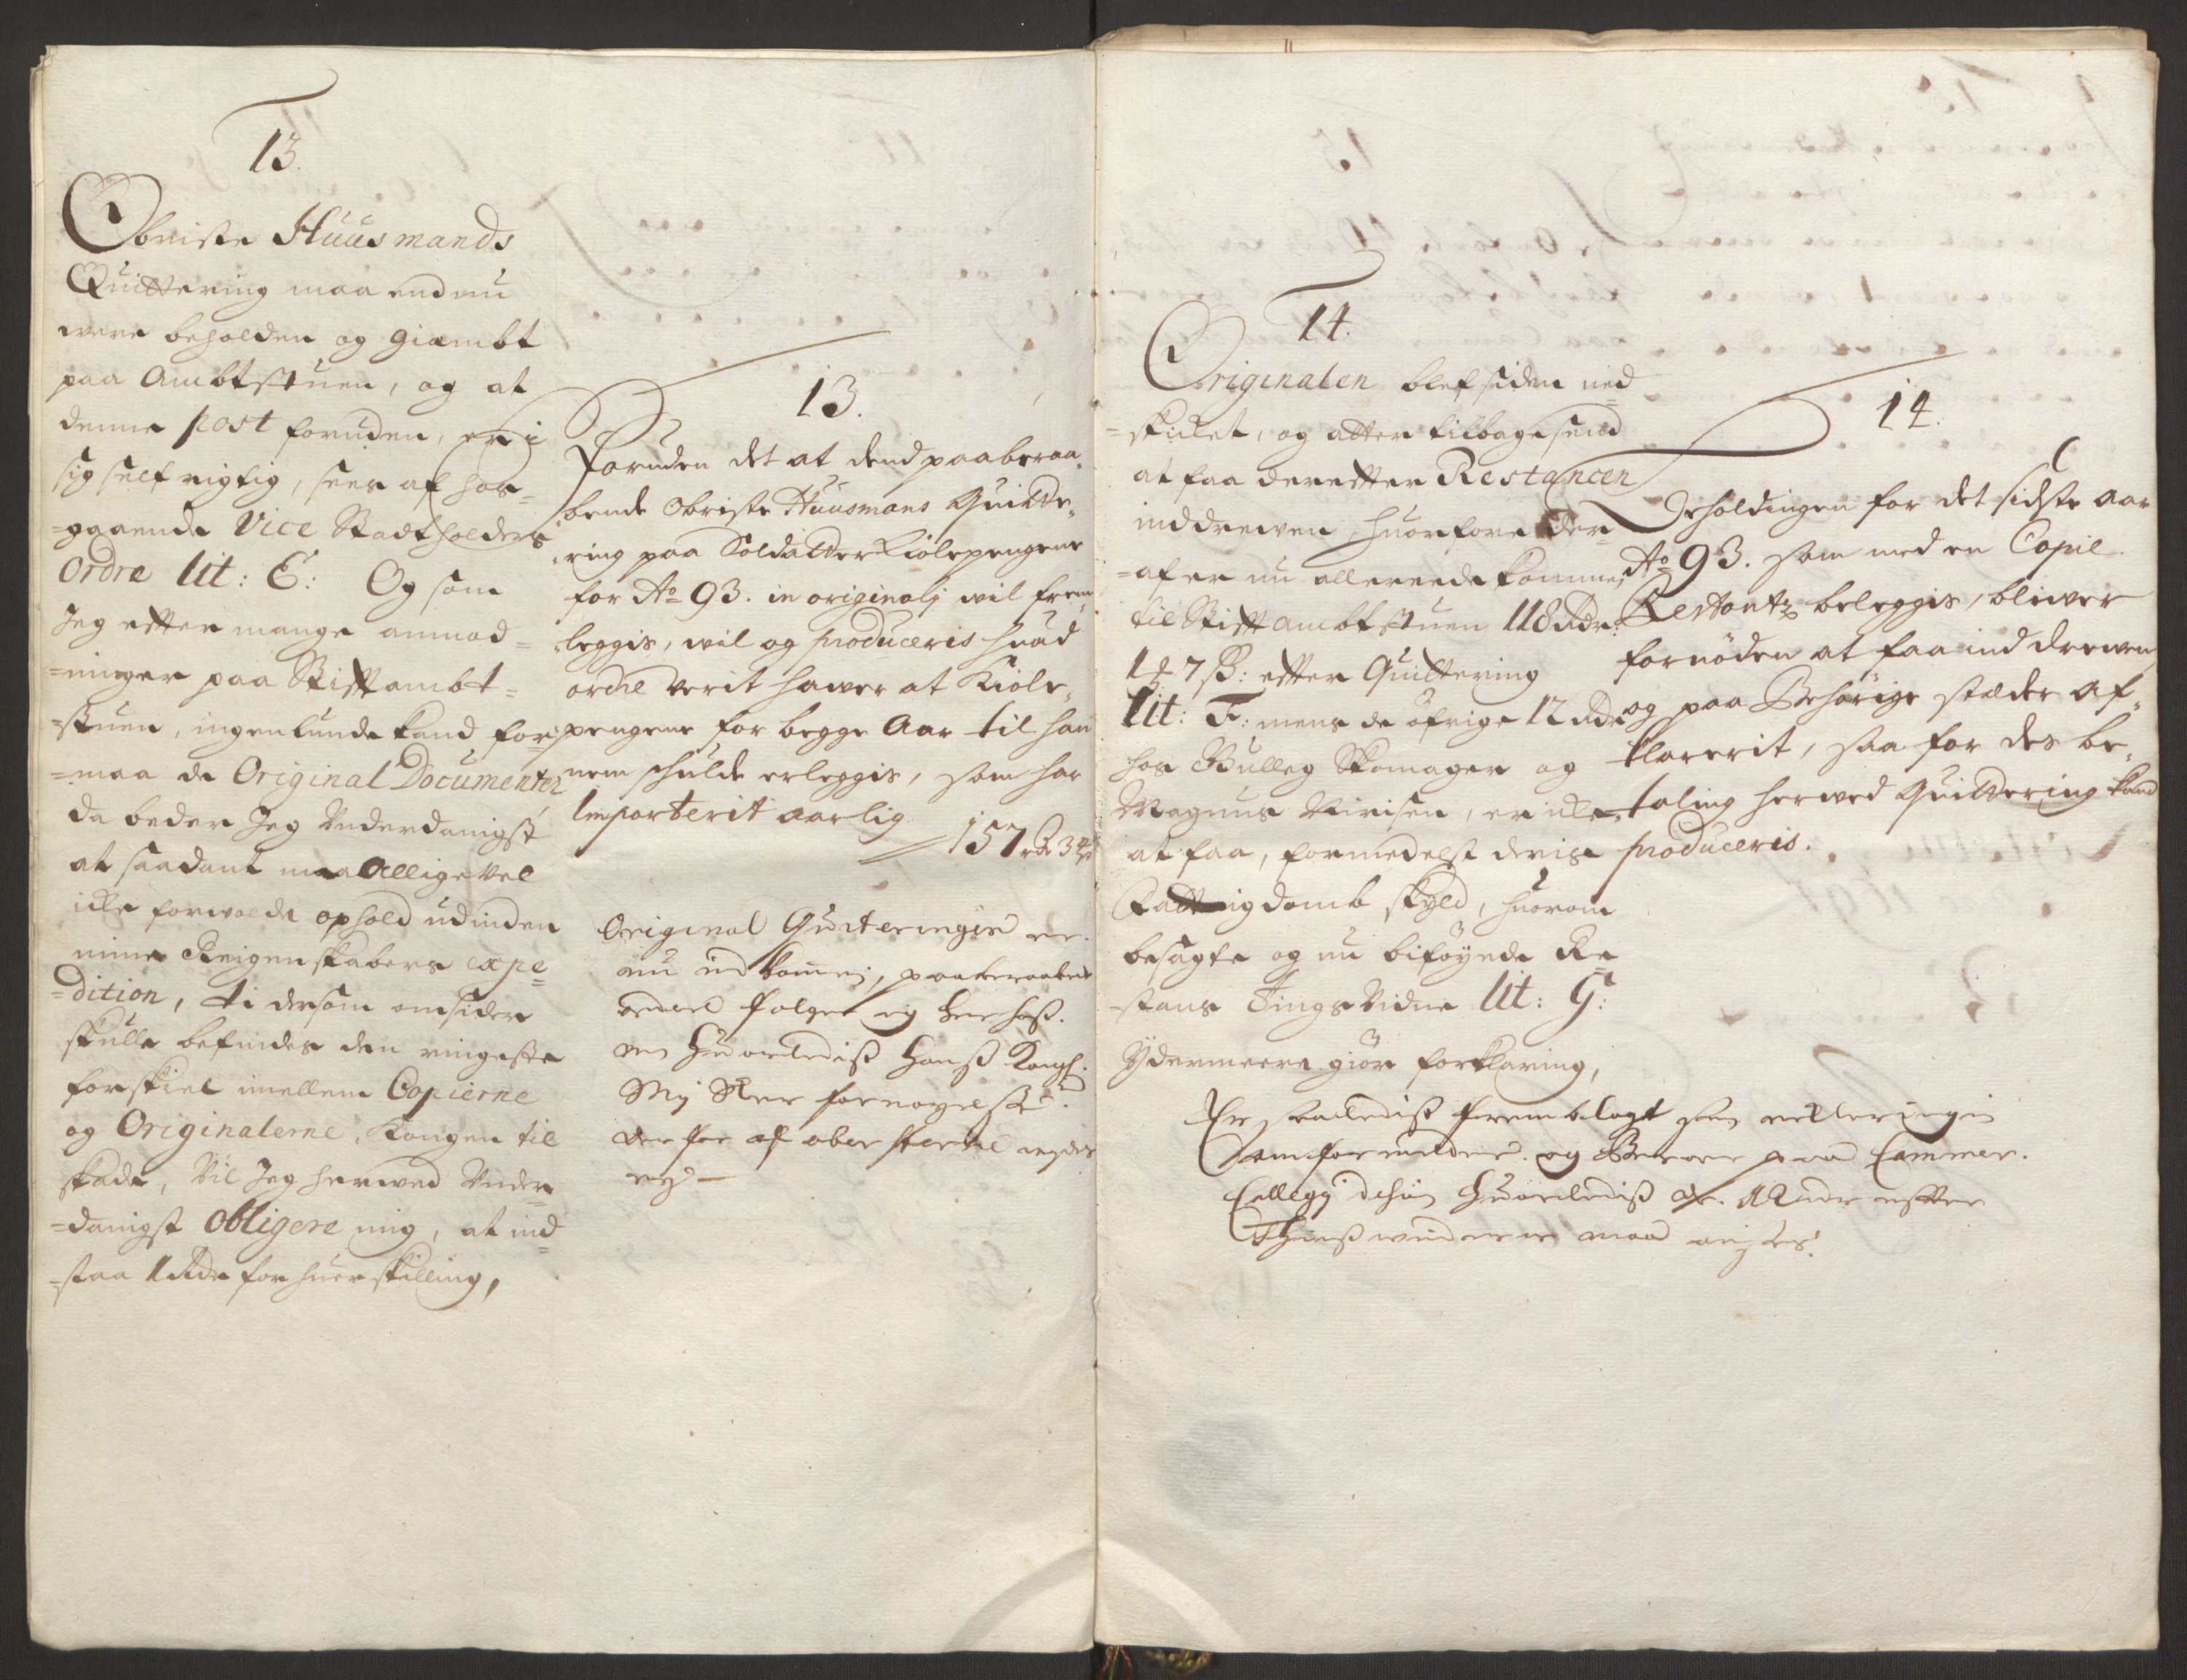 13.
Obriste Huusmands
Quittering maa endnu
være beholden og giembt
paa Ambtstuen, og at
denne post foruden, er i
sig self rigtig, sees af hos-
=gaaende Vice Stadtholders
Ordre lit: E: Og som
Jeg efter mange anmod-
=ninger paa Stiftambt-
=stuen, ingenlunde kand for-
=maa de Original Documenter
da beder Jeg Underdanigst
at saadant maa alligevel
icke forvolde ophold udinden
mine Reigenskabers expe-
=dition, Ti dersom omsider
skulle befindes den ringeste
forskiel imellem Copierne
og Originalerne, Kongen til
skade, Vil Jeg herved Under-
=danigst obligere mig, at ind-
=staa 1 Rdr for huer skilling,
13.
Foruden det at dend paaberaa-
bende Obriste Huusmans Quitte-
ring paa Soldatter Kiolepengene
for Ao 93. in originali vil frem-
leggis, vil og produceris huad
ordre verit hawer at Kiole-
pengene for begge Aar til han-
nem schulde erleggis, som har
Importerit aarlig
157 rdr 3
Original Quiteringer er
nu ind kommen, paaberaabte
ordre følger og her hoß.
om huorlediß Hanß Kongl.
May
der for af
ey -
14.
Originalen blef siden ned-
=skicket, og atter tilbagesend
at faa derefter Restancen
inddrewen, huorfore der-
=af er nu allereede kommen
til Stiftambtstuen 118 Rdr:
1 7 ß: efter Quittering
lit: F: mens de øfrige 12 Rdr
hos Bulleg Skomager og
Magnus Nirisen, er icke
at faa, formedelst deris
Fattigdomb skyld, huorom
besagte og nu bifoyede Re-
=stans Tings Vidne lit: G:
Ydermeere giør forklaring,
Er saaledis frembelagt som
og Beroer paa Cammer
Collegy huorledis de 12 Rdr efter
maa
14.
Beholdingen for det sidste aar
Ao 93. som med en Copie
Restantz beleggis, bliver
fornøden at faa ind drewen
og paa Behørige stæder af-
klarerit, saa for des be-
taling herwed Quittering kand
produceris.